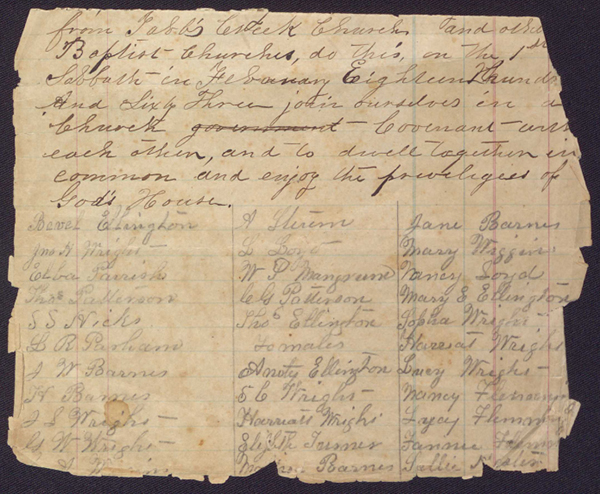 from Tabb's Creek Church and other
Baptist Churches, do this, on the 1st
Sabbath in February Eighteen Hund
And Sixty Three join ourselves in a
Church government Covenant with
each other, and to dwell together in
common and enjoy the priviliges of
God's House.
Bevel Ellington
Jno H Wright
Elba Parrish
Thos Patterson
S S Hicks
L R Parham
J W Barnes
H Barnes
J S Wright
G W Wright
A Sterum
L Loyd
W P Mangrum
C G Patterson
Thos Ellington
Females
Anoty Ellington
S C Wright
Harriatt Wright
Elizth Turner
Barnes
Jane Barnes
Mary Wiggin
Nancy Loyd
Mary E Ellington
Sopha Wright
Harriat Wright
Lucy Wright
Nancy Fleming
Flemming
Fannie
Sallie